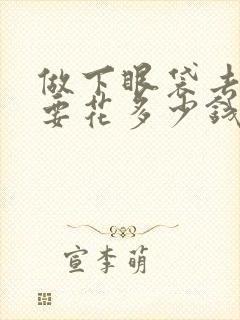 做下眼袋去
要花多少錢
宣李萌